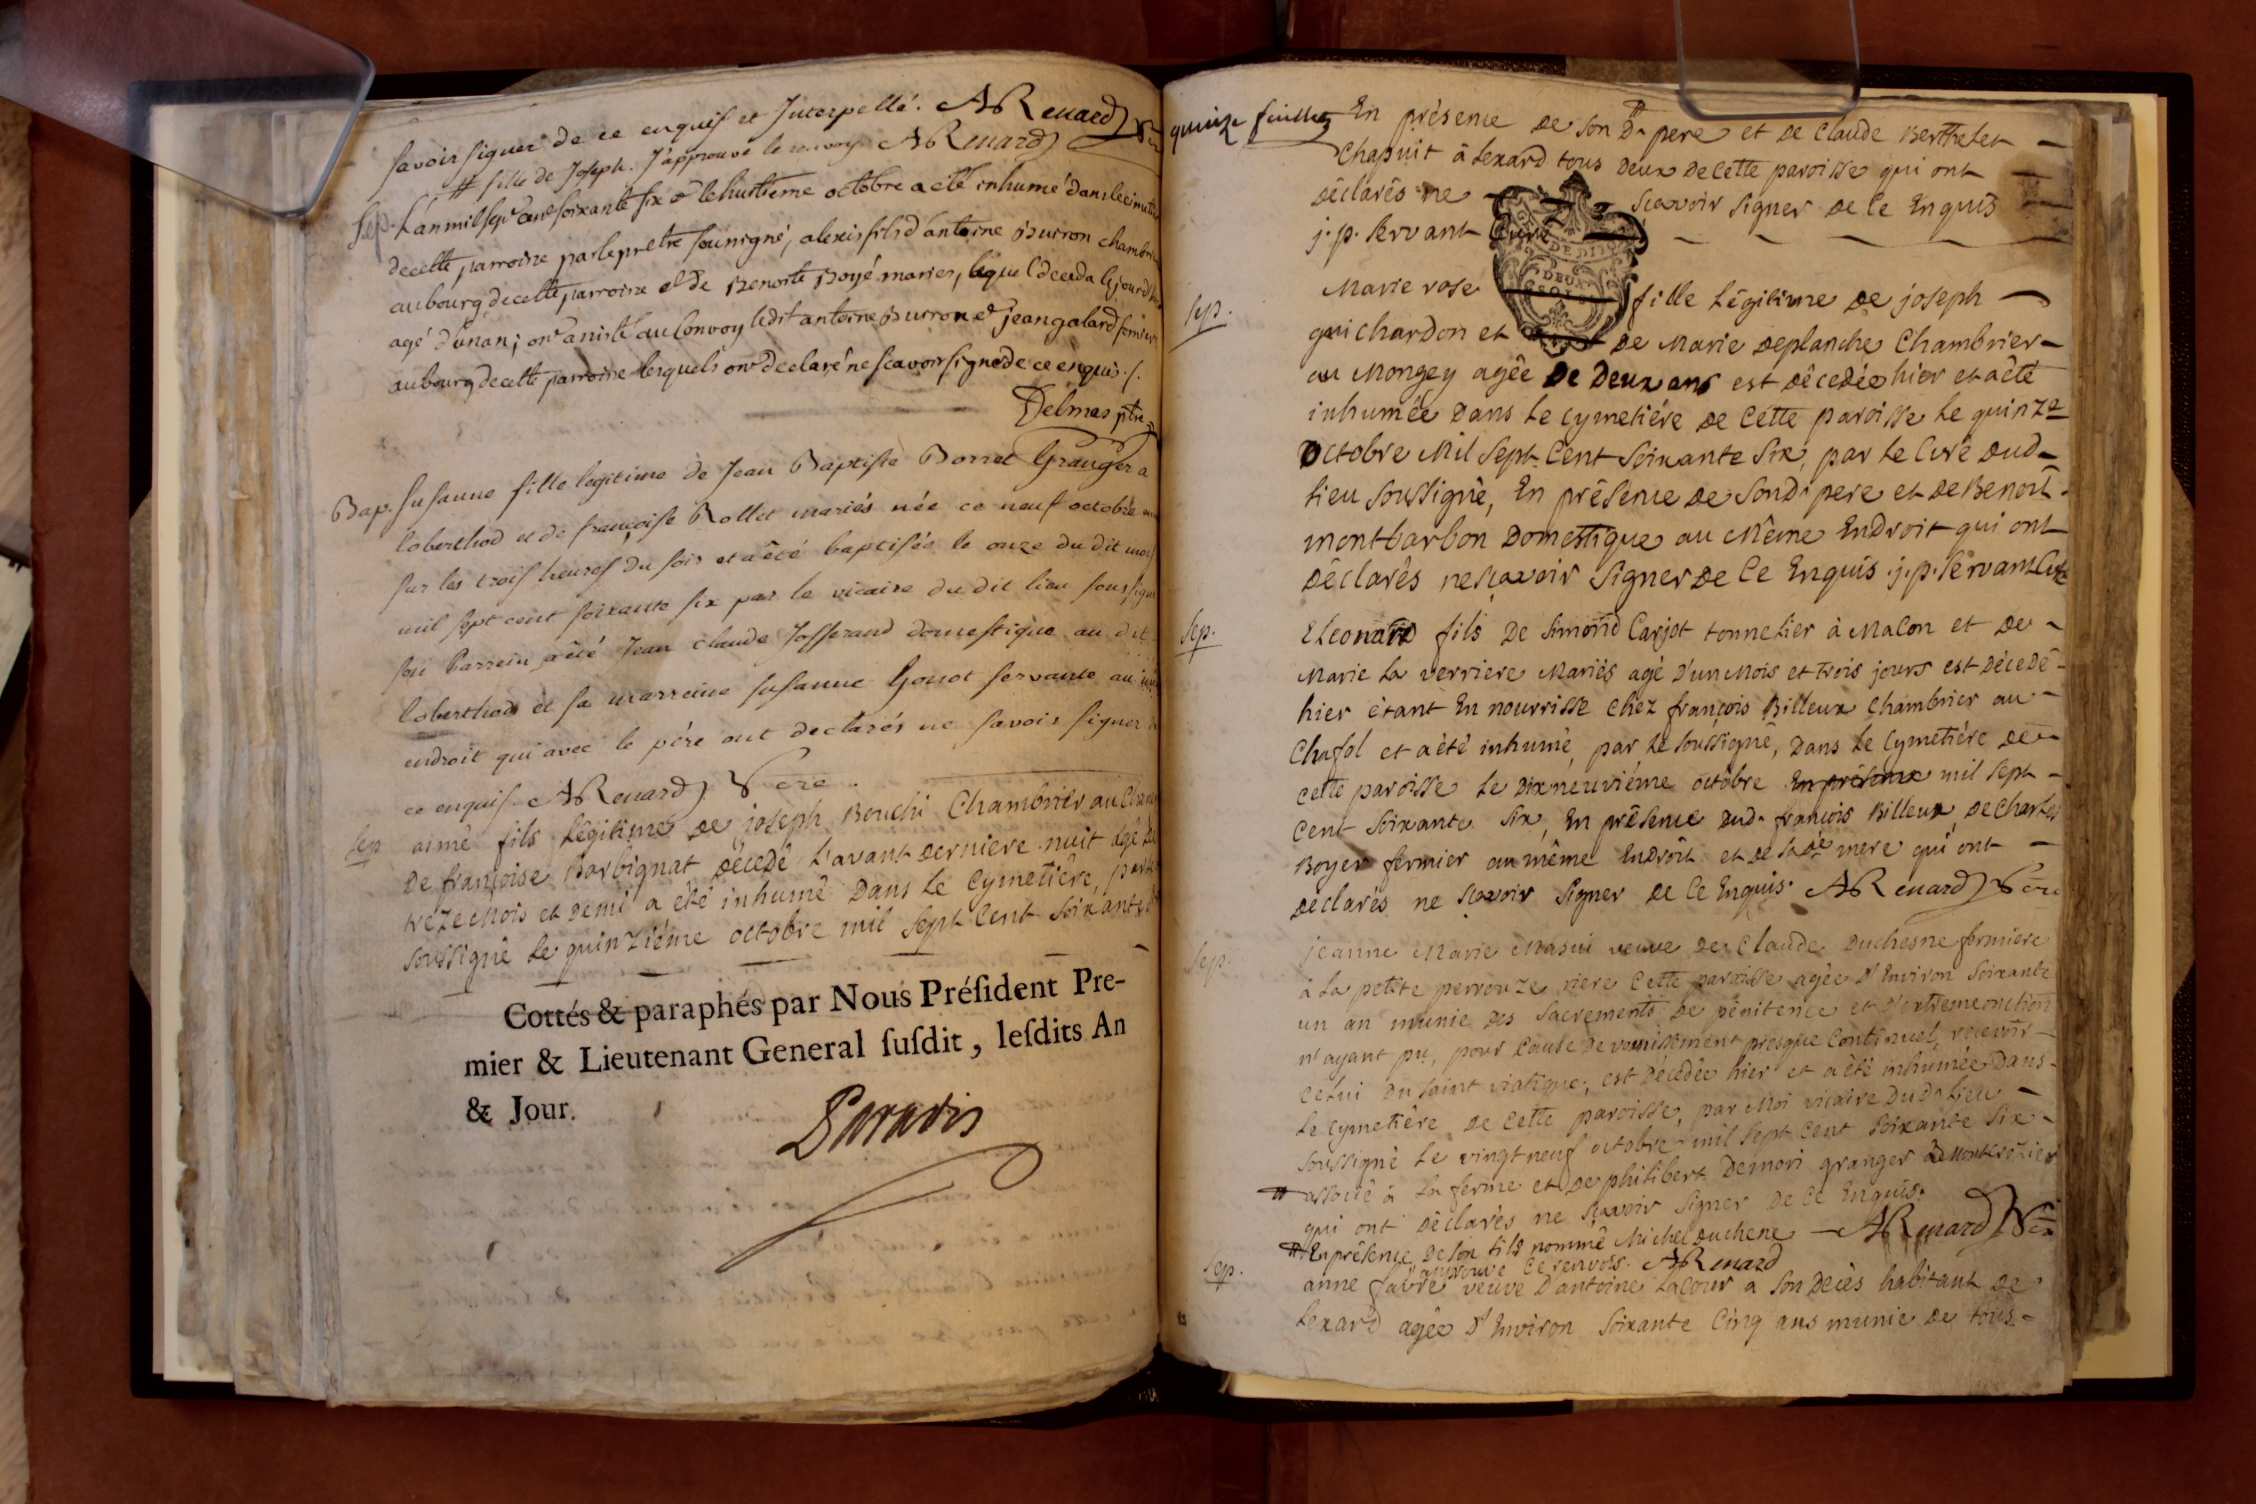 savoir signer de ce enquis et Interpellé. ARenard Vre
# fille de Joseph. J'approuve le renvoy ARenard
Sep. L'an mil sept cent soixante six & le huitieme octobre a eté inhumé dans le cimetie
de cette parroisse par le pretre sousigné, alexis fils d'antoine Burron chambrie
au bourg de cette parroisse et de Benoite Boyé mariés, lequel deceda le jour d'
agé d'un an; ont assisté au Convoy ledit antoine Burron et jean galard fermier
au bourg de cette parroisse lesquels ont declaré ne scavoir signé de ce enquis ./.
Delmas ptre
Bap. Susanne fille legitime de Jean Baptiste Borret Granger a
loberthod et de françoise Rollet mariés née ce neuf octobre
sur les trois heures du soir et a êté baptisée le onze du dit mois
mil sept cent soixante six par le vicaire du dit lieu soussigné
son Parrein a êté Jean Claude Josserand domestique au dit
loberthod et sa marreine susanne Gonot servante au
endroit qui avec le pére ont declarés ne savoir signer d
ce enquis ARenard Vre
Sep aimé fils Légitime de joseph Bouchi Chambrier au
De françoise Barbignat décedé L'avant derniere nuit agé de
treze Mois et demi a été inhumé Dans Le Cymetiére, par le
soussigné Le quinziéme octobre mil sept Cent soixante
Cottés & paraphés par Nous Préſident Pre-
mier & Lieutenant General ſuſdit, leſdits An
& Jour.
Paradis
quinze feuillet En présence De son Dt pere et De Claude Berthelet
Chapuit à Lexard tous Deux De Cette paroisse qui ont
Déclarés ne scavoir signer De Ce Enquis
j. p. Servant Curé
DEUX
Sep. Marie rose fille Légitime De joseph
guichardon et De Marie Deplanche Chambrier
au Mongey agée De Deux ans est décedée hier et a été
inhumée Dans Le Cymetiére De Cette paroisse Le quinze
octobre Mil Sept Cent Soixante Six, par Le Curé Dud.
Lieu soussigné, En présence De Sond. pere et De Benoit
montbarbon Domestique au Même Endroit qui ont
Déclarés ne scavoir Signer De Ce Enquis. j. p. Servant Curé
Sep. Leonard fils De Simond Carjot tonnelier à Macon et De
Marie La verriere Mariés agé D'un Mois et trois jours est Décedé
hier étant En nourrisse Chez françois Billeux Chambrier au
Chafol et a été inhumé, par Le soussigné, Dans Le Cymetiére De
Cette paroisse Le Dixneuviéme octobre En présence mil Sept
Cent Soixante Six, En présence Dud. françois Billeux, De Charles
Boyer fermier au même Endroit et De Sa de mere qui ont
Déclarés ne scavoir Signer De Ce Enquis. ARenard Vre
Sep. jeanne Marie Masui veuve De Claude Duchesne fermiere
à La petite perrouze riere Cette paroisse agée D'Environ soixante
un an munie Des Sacrements De pénitence et D'extremeonction
n'ayant pu, pour Cause De vomissement presque Continuel, recevoir
Celui Du Saint viatique; est Décedée hier et a été inhumée Dans
Le Cymetiére De Cette paroisse, par Moi vicaire Dud. Lieu
soussigné Le vingt neuf octobre mil Sept Cent Soixante Six
# associé à La ferme et De philibert Demori granger De Montcrozier
qui ont Déclarés ne scavoir Signer De Ce Enquis.
# En présence De Son fils nommé Michel Duchene ARenard Vre
J'approuve Ce renvois. ARenard
Sep. anne favre veuve D'antoine Lacour a Son Décès habitant De
Lexard agée D'Environ Soixante Cinq ans munie De tous